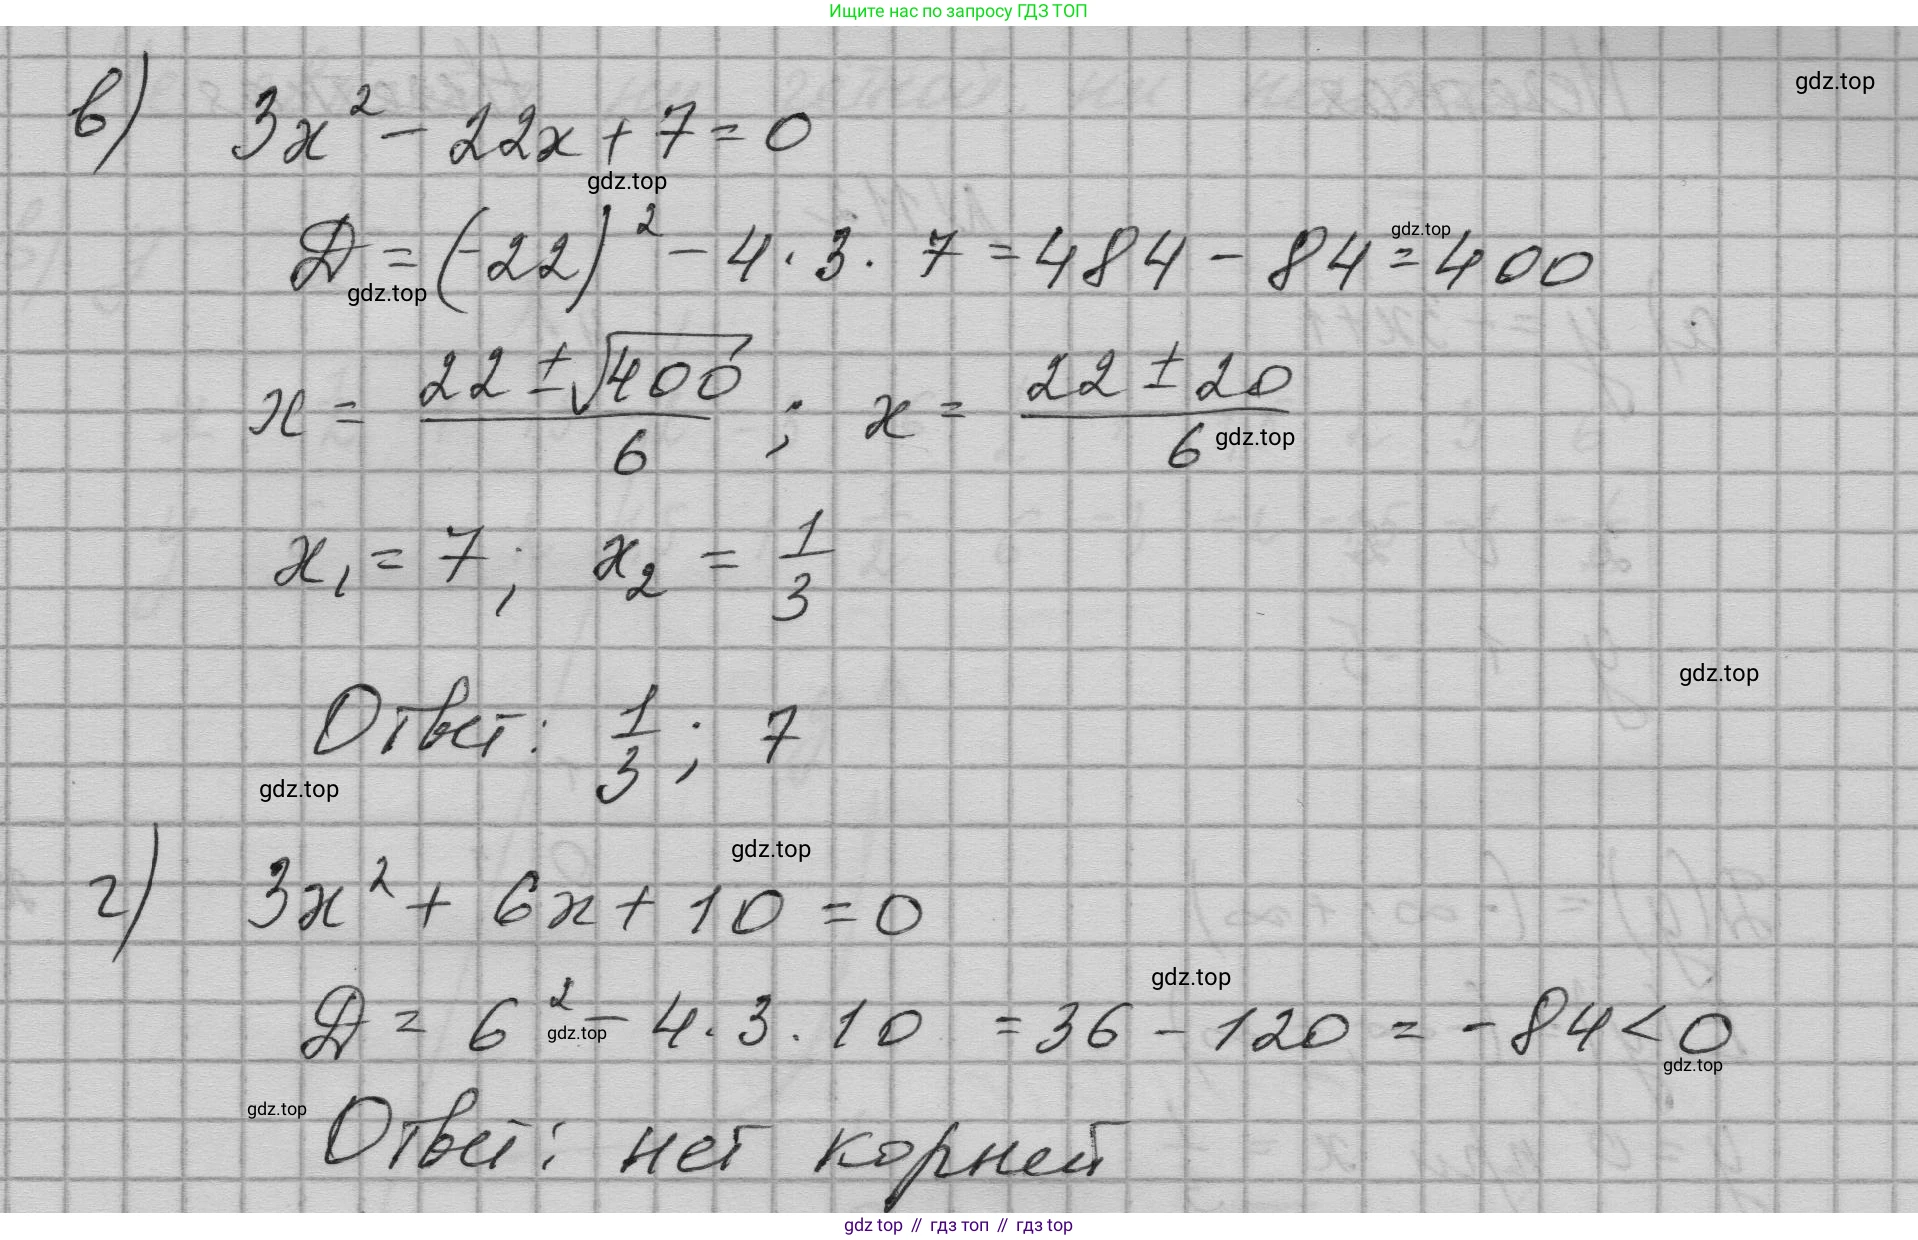 Ищите нас по запросу ГДЗ ТОП
gdz.top
в) 3x² - 22x + 7 = 0
gdz.top
Д = (-22)² - 4 · 3 · 7 = 484 - 84 = 400
gdz.top
gdz.top
x = (22 ± √400)/6 ; x = (22 ± 20)/6
gdz.top
x₁ = 7 ; x₂ = 1/3
gdz.top
Ответ: 1/3 ; 7
gdz.top
gdz.top
г) 3x² + 6x + 10 = 0
gdz.top
Д = 6² - 4 · 3 · 10 = 36 - 120 = -84 < 0
gdz.top
gdz.top
gdz.top
Ответ: нет корней
gdz top // гдз топ // гдз top